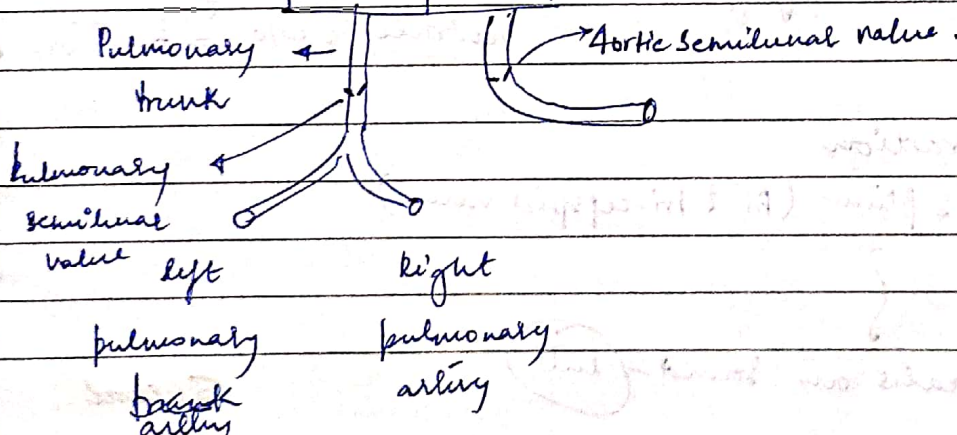 Pulmonary
trunk
Aortic semilunar valve.
Pulmonary
semilunar
valve
left
pulmonary
artery
Right
pulmonary
artery